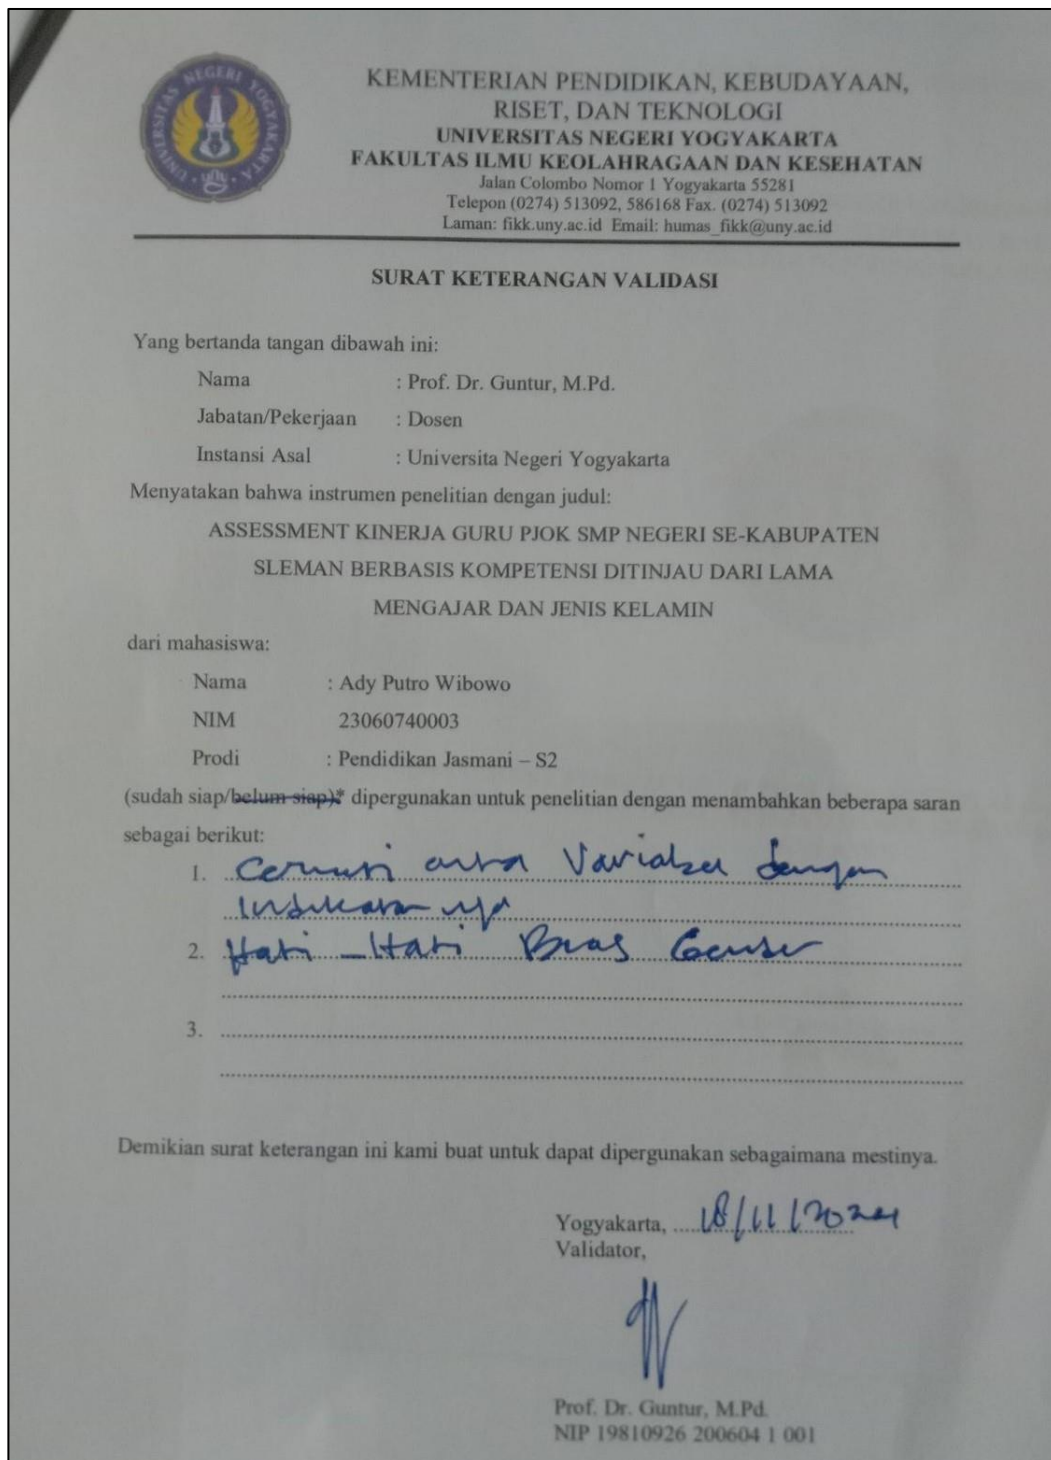 UNIVERSITAS NEGERI YOGYAKARTA
KEMENTERIAN PENDIDIKAN, KEBUDAYAAN,
RISET, DAN TEKNOLOGI
UNIVERSITAS NEGERI YOGYAKARTA
FAKULTAS ILMU KEOLAHRAGAAN DAN KESEHATAN
Jalan Colombo Nomor 1 Yogyakarta 55281
Telepon (0274) 513092, 586168 Fax. (0274) 513092
Laman: fikk.uny.ac.id Email: humas_fikk@uny.ac.id
SURAT KETERANGAN VALIDASI
Yang bertanda tangan dibawah ini:
Nama : Prof. Dr. Guntur, M.Pd.
Jabatan/Pekerjaan : Dosen
Instansi Asal : Universita Negeri Yogyakarta
Menyatakan bahwa instrumen penelitian dengan judul:
ASSESSMENT KINERJA GURU PJOK SMP NEGERI SE-KABUPATEN
SLEMAN BERBASIS KOMPETENSI DITINJAU DARI LAMA
MENGAJAR DAN JENIS KELAMIN
dari mahasiswa:
Nama : Ady Putro Wibowo
NIM 23060740003
Prodi : Pendidikan Jasmani – S2
(sudah siap/belum siap)* dipergunakan untuk penelitian dengan menambahkan beberapa saran
sebagai berikut:
1. Cermati Variabel dengan
Indikatornya
2. Hati-Hati Bias Gender
3.
Demikian surat keterangan ini kami buat untuk dapat dipergunakan sebagaimana mestinya.
Yogyakarta, 18/11/2024
Validator,
Prof. Dr. Guntur, M.Pd.
NIP 19810926 200604 1 001